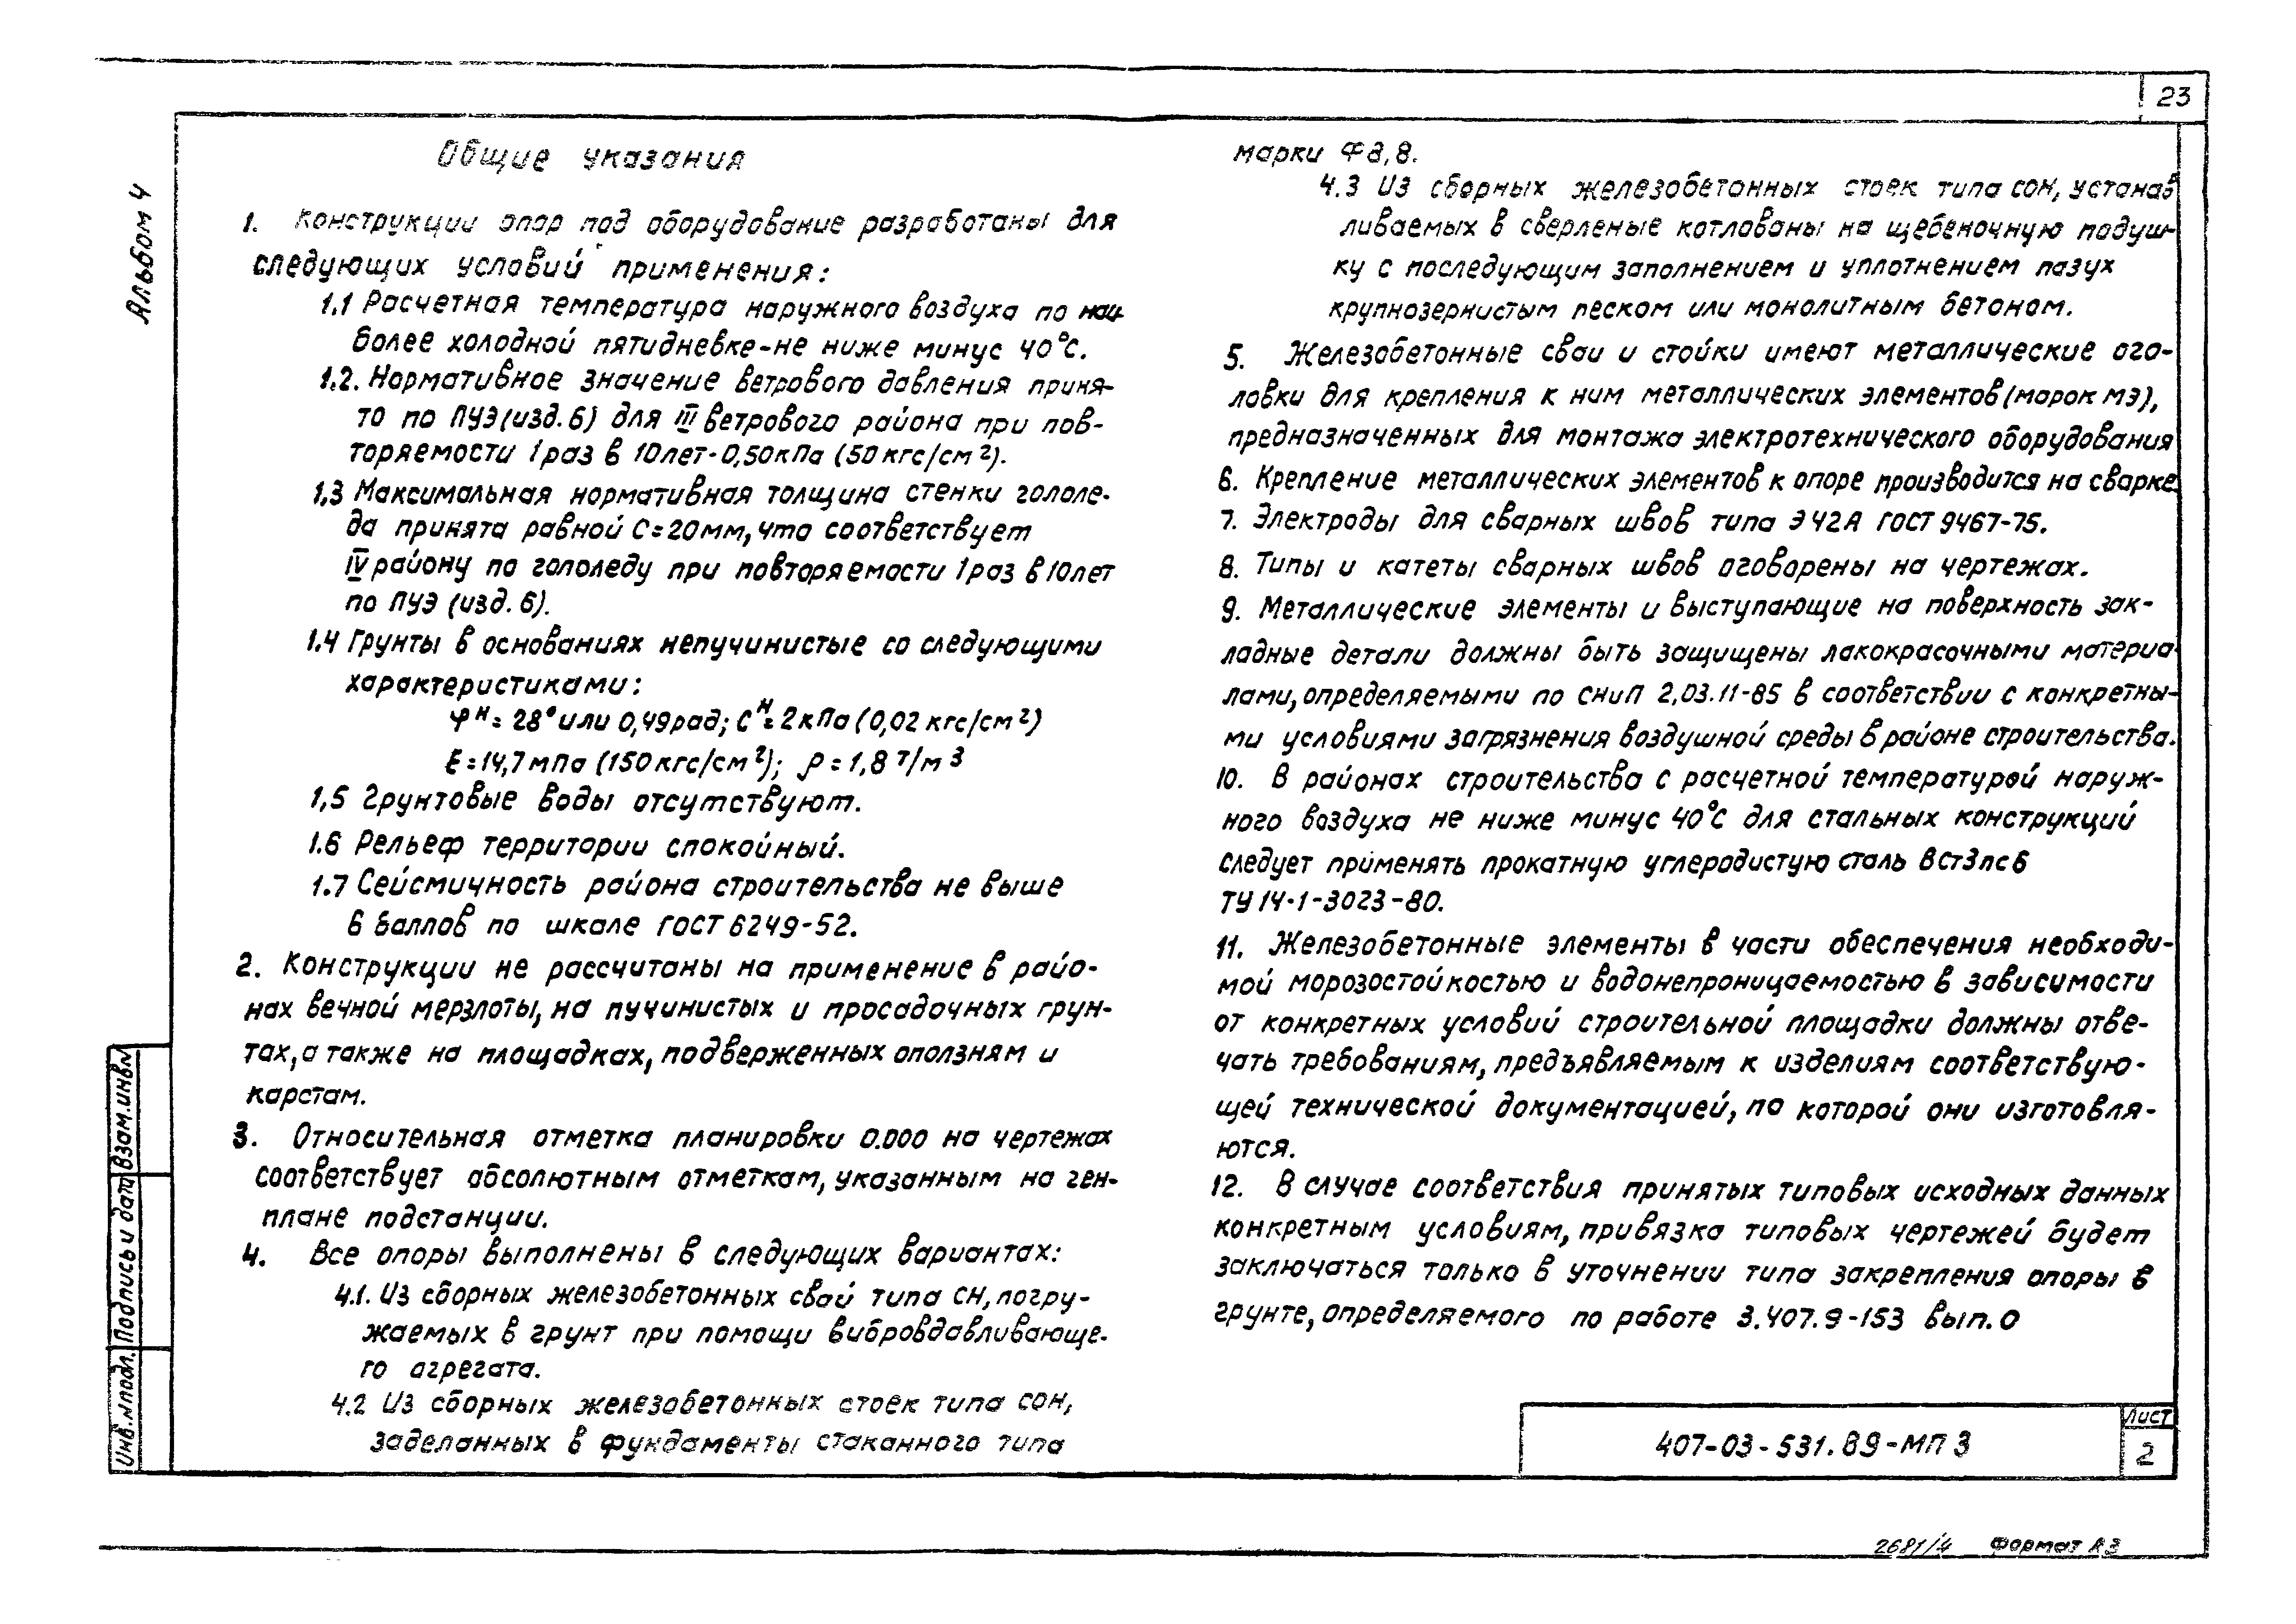 23
Альбом 4
Общие указания
1. Конструкции опор под оборудование разработаны для
следующих условий применения:
1.1 Расчетная температура наружного воздуха по наи-
более холодной пятидневке-не ниже минус 40°с.
1.2. Нормативное значение ветрового давления приня-
то по ПУЭ(изд.6) для III ветрового района при пов-
торяемости 1 раз в 10 лет-0,50кПа (50 кгс/см²).
1.3 Максимальная нормативная толщина стенки гололе-
да принята равной С=20мм, что соответствует
IV району по гололеду при повторяемости 1 раз в 10 лет
по ПУЭ (изд. 6).
1.4 Грунты в основаниях непучинистые со следующими
характеристиками:
φᴴ= 28° или 0,49рад; Сᴴ= 2кПа (0,02 кгс/см²)
E=14,7мПа (150кгс/см²); ρ=1,8 т/м3
1,5 Грунтовые воды отсутствуют.
1.6 Рельеф территории спокойный.
1.7 Сейсмичность района строительства не выше
6 баллов по шкале ГОСТ 6249-52.
2. Конструкции не рассчитаны на применение в райо-
нах вечной мерзлоты, на пучинистых и просадочных грун-
тах, а также на площадках, подверженных оползням и
карстам.
3. Относительная отметка планировки 0.000 на чертежах
соответствует абсолютным отметкам, указанным на ген-
плане подстанции.
4. Все опоры выполнены в следующих вариантах:
4.1. Из сборных железобетонных свай типа СН, погру-
жаемых в грунт при помощи вибровдавливающе-
го агрегата.
4.2 Из сборных железобетонных стоек типа СОН,
заделанных в фундаменты стаканного типа
марки Ф8,8.
4.3 Из сборных железобетонных стоек типа СОН, устанав
ливаемых в сверленые котлованы на щебеночную подуш-
ку с последующим заполнением и уплотнением пазух
крупнозернистым песком или монолитным бетоном.
5. Железобетонные сваи и стойки имеют металлические ого-
ловки для крепления к ним металлических элементов (марок МЭ),
предназначенных для монтажа электротехнического оборудования
6. Крепление металлических элементов к опоре производится на сварке.
7. Электроды для сварных швов типа Э42А ГОСТ 9467-75.
8. Типы и катеты сварных швов оговорены на чертежах.
9. Металлические элементы и выступающие на поверхность зак-
ладные детали должны быть защищены лакокрасочными материа-
лами, определяемыми по СНиП 2.03.11-85 в соответствии с конкретны-
ми условиями загрязнения воздушной среды в районе строительства.
10. В районах строительства с расчетной температурой наруж-
ного воздуха не ниже минус 40°С для стальных конструкций
следует применять прокатную углеродистую сталь ВСт3пс6
ТУ14-1-3023-80.
11. Железобетонные элементы в части обеспечения необходи-
мой морозостойкостью и водонепроницаемостью в зависимости
от конкретных условий строительной площадки должны отве-
чать требованиям, предъявляемым к изделиям соответствую-
щей технической документацией, по которой они изготовля-
ются.
12. В случае соответствия принятых типовых исходных данных
конкретным условиям, привязка типовых чертежей будет
заключаться только в уточнении типа закрепления опоры в
грунте, определяемого по работе 3.407.9-153 вып.0
Взам.инв.№
Подпись и дата
Инв.№подл.
407-03-531.89-МП 3
Лист
2
2681/4 Формат А3